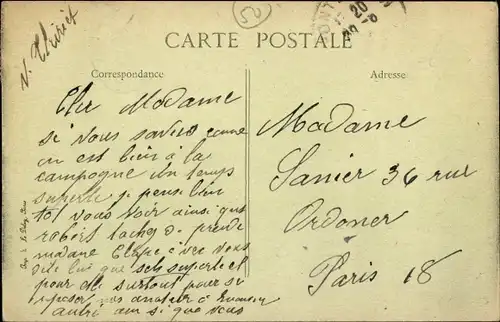 V. Thiriet
25
CARTE POSTALE
Correspondance
Adresse
Cher Madame
si vous saviez come
on est bien à la
campagne un temps
superbe je pense bien
tot vous voir ainsi que
robert tachez de prendre
madame
dite lui que sets superbe et
pour elle surtout pour se
reposer
si que vous
Madame
Sanier 36 rue
Ordoner
Paris 18